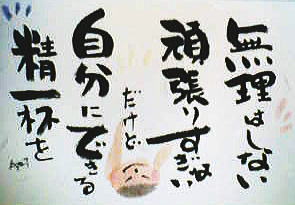 無理はしない
頑張りすぎない
だけど
自分にできる
精一杯を